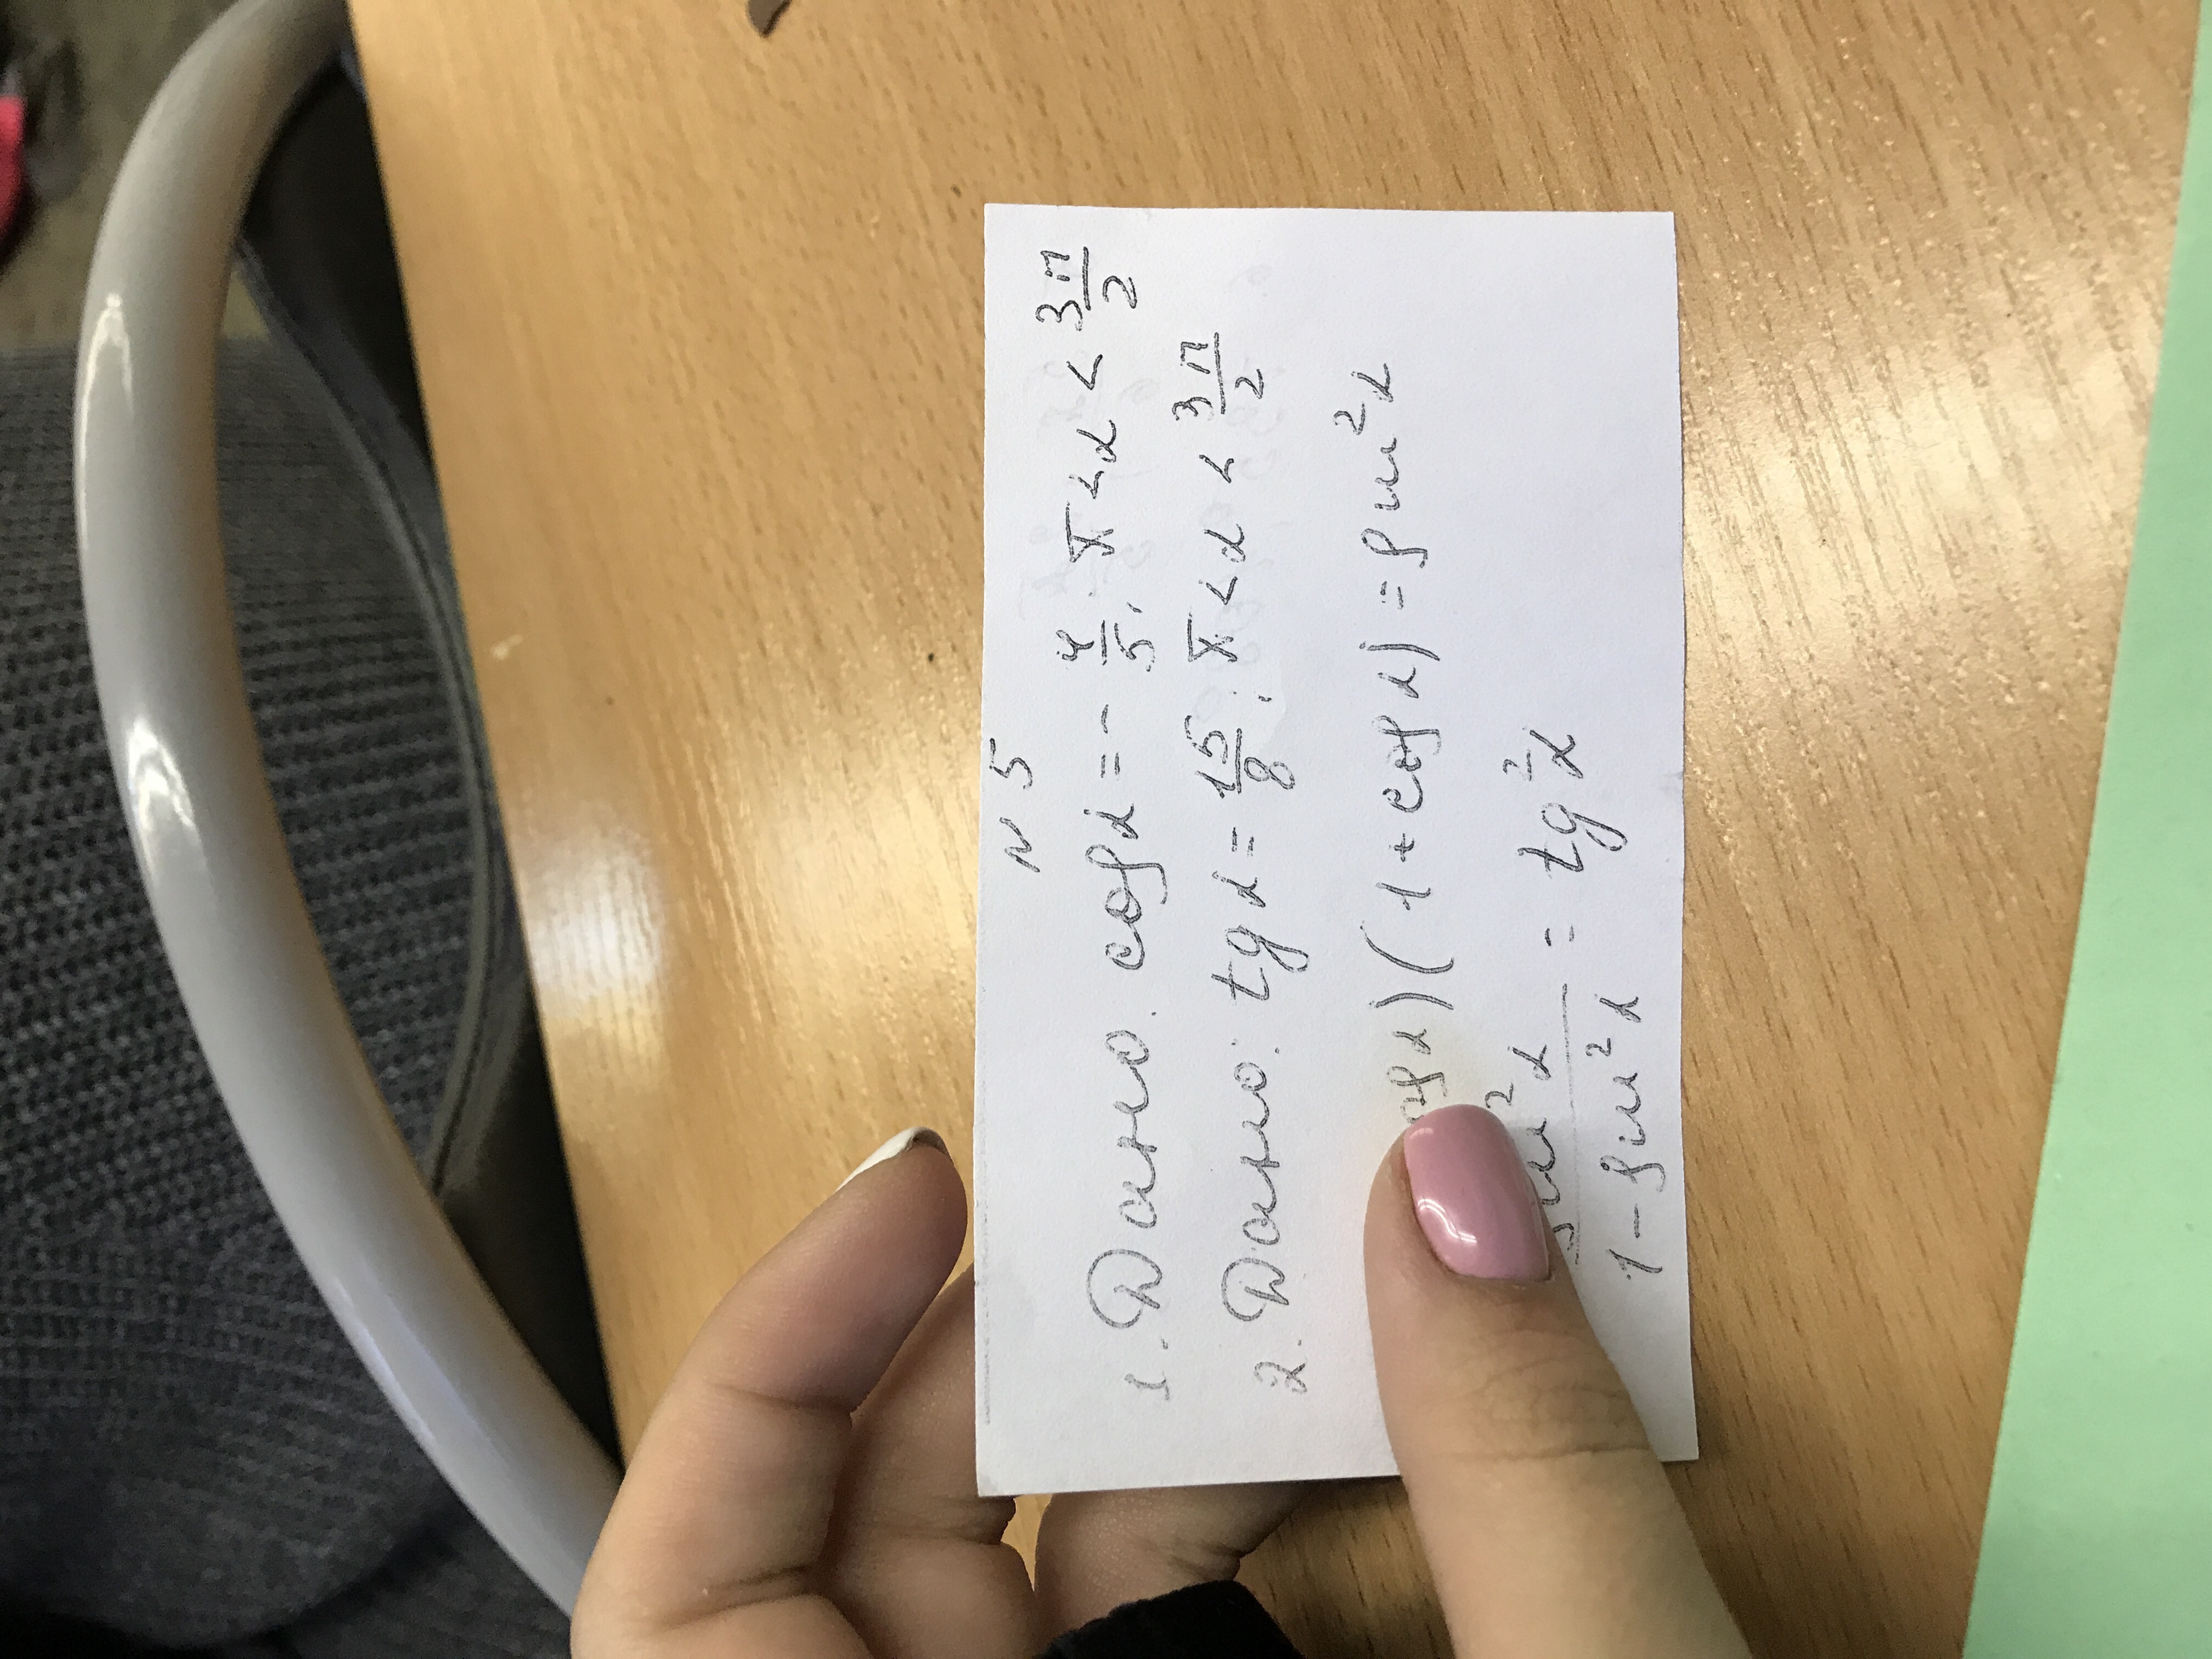 N 5
1. Дано. cos α = - 4/5, π < α < 3π/2
2. Дано: tg α = 15/8; π < α < 3π/2
α)(1 + cos α) = sin²α
sin²α / 1 - sin²α = tg²α